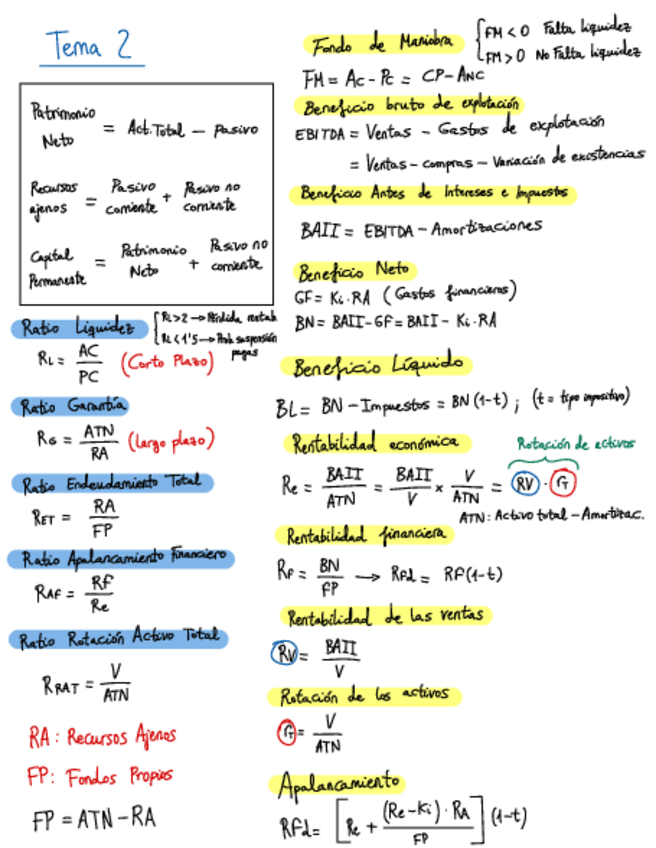 Tema 2
Patrimonio Neto = Act. Total - Pasivo
Recursos ajenos = Pasivo corriente + Pasivo no corriente
Capital Permanente = Patrimonio Neto + Pasivo no corriente
Ratio Liquidez { RL > 2 → Pérdida rentab
RL < 1'5 → Prob. suspensión pagos
RL = AC / PC (Corto Plazo)
Ratio Garantía
RG = ATN / RA (largo plazo)
Ratio Endeudamiento Total
RET = RA / FP
Ratio Apalancamiento Financiero
RAF = Rf / Re
Ratio Rotación Activo Total
RRAT = V / ATN
RA: Recursos Ajenos
FP: Fondos Propios
FP = ATN - RA
Fondo de Maniobra { FM < 0 Falta liquidez
FM > 0 No Falta liquidez
FM = AC - PC = CP - ANC
Beneficio bruto de explotación
EBITDA = Ventas - Gastos de explotación
= Ventas - compras - Variación de existencias
Beneficio Antes de Intereses e Impuestos
BAII = EBITDA - Amortizaciones
Beneficio Neto
GF = Ki · RA (Gastos financieros)
BN = BAII - GF = BAII - Ki · RA
Beneficio Líquido
BL = BN - Impuestos = BN (1-t) ; (t = tipo impositivo)
Rentabilidad económica
Rotación de activos
Re = BAII / ATN = BAII / V × V / ATN = RV · G
ATN: Activo total - Amortizac.
Rentabilidad financiera
RF = BN / FP → RFd = RF(1-t)
Rentabilidad de las ventas
RV = BAII / V
Rotación de los activos
G = V / ATN
Apalancamiento
RFd = [Re + (Re - Ki) · RA / FP] (1-t)